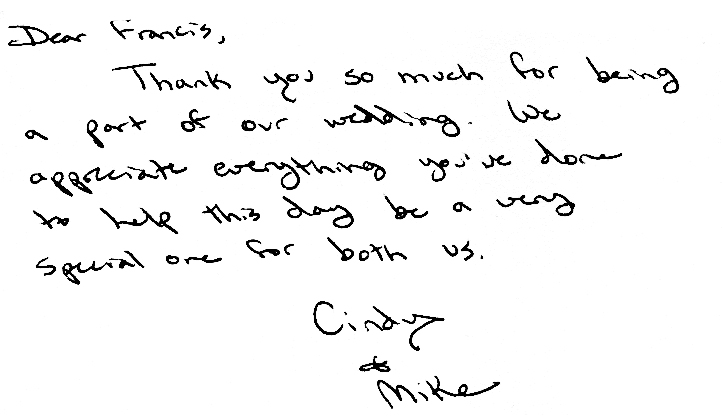 Dear Francis,
Thank you so much for being
a part of our wedding. We
appreciate everything you've done
to help this day be a very
special one for both us.
Cindy
&
Mike